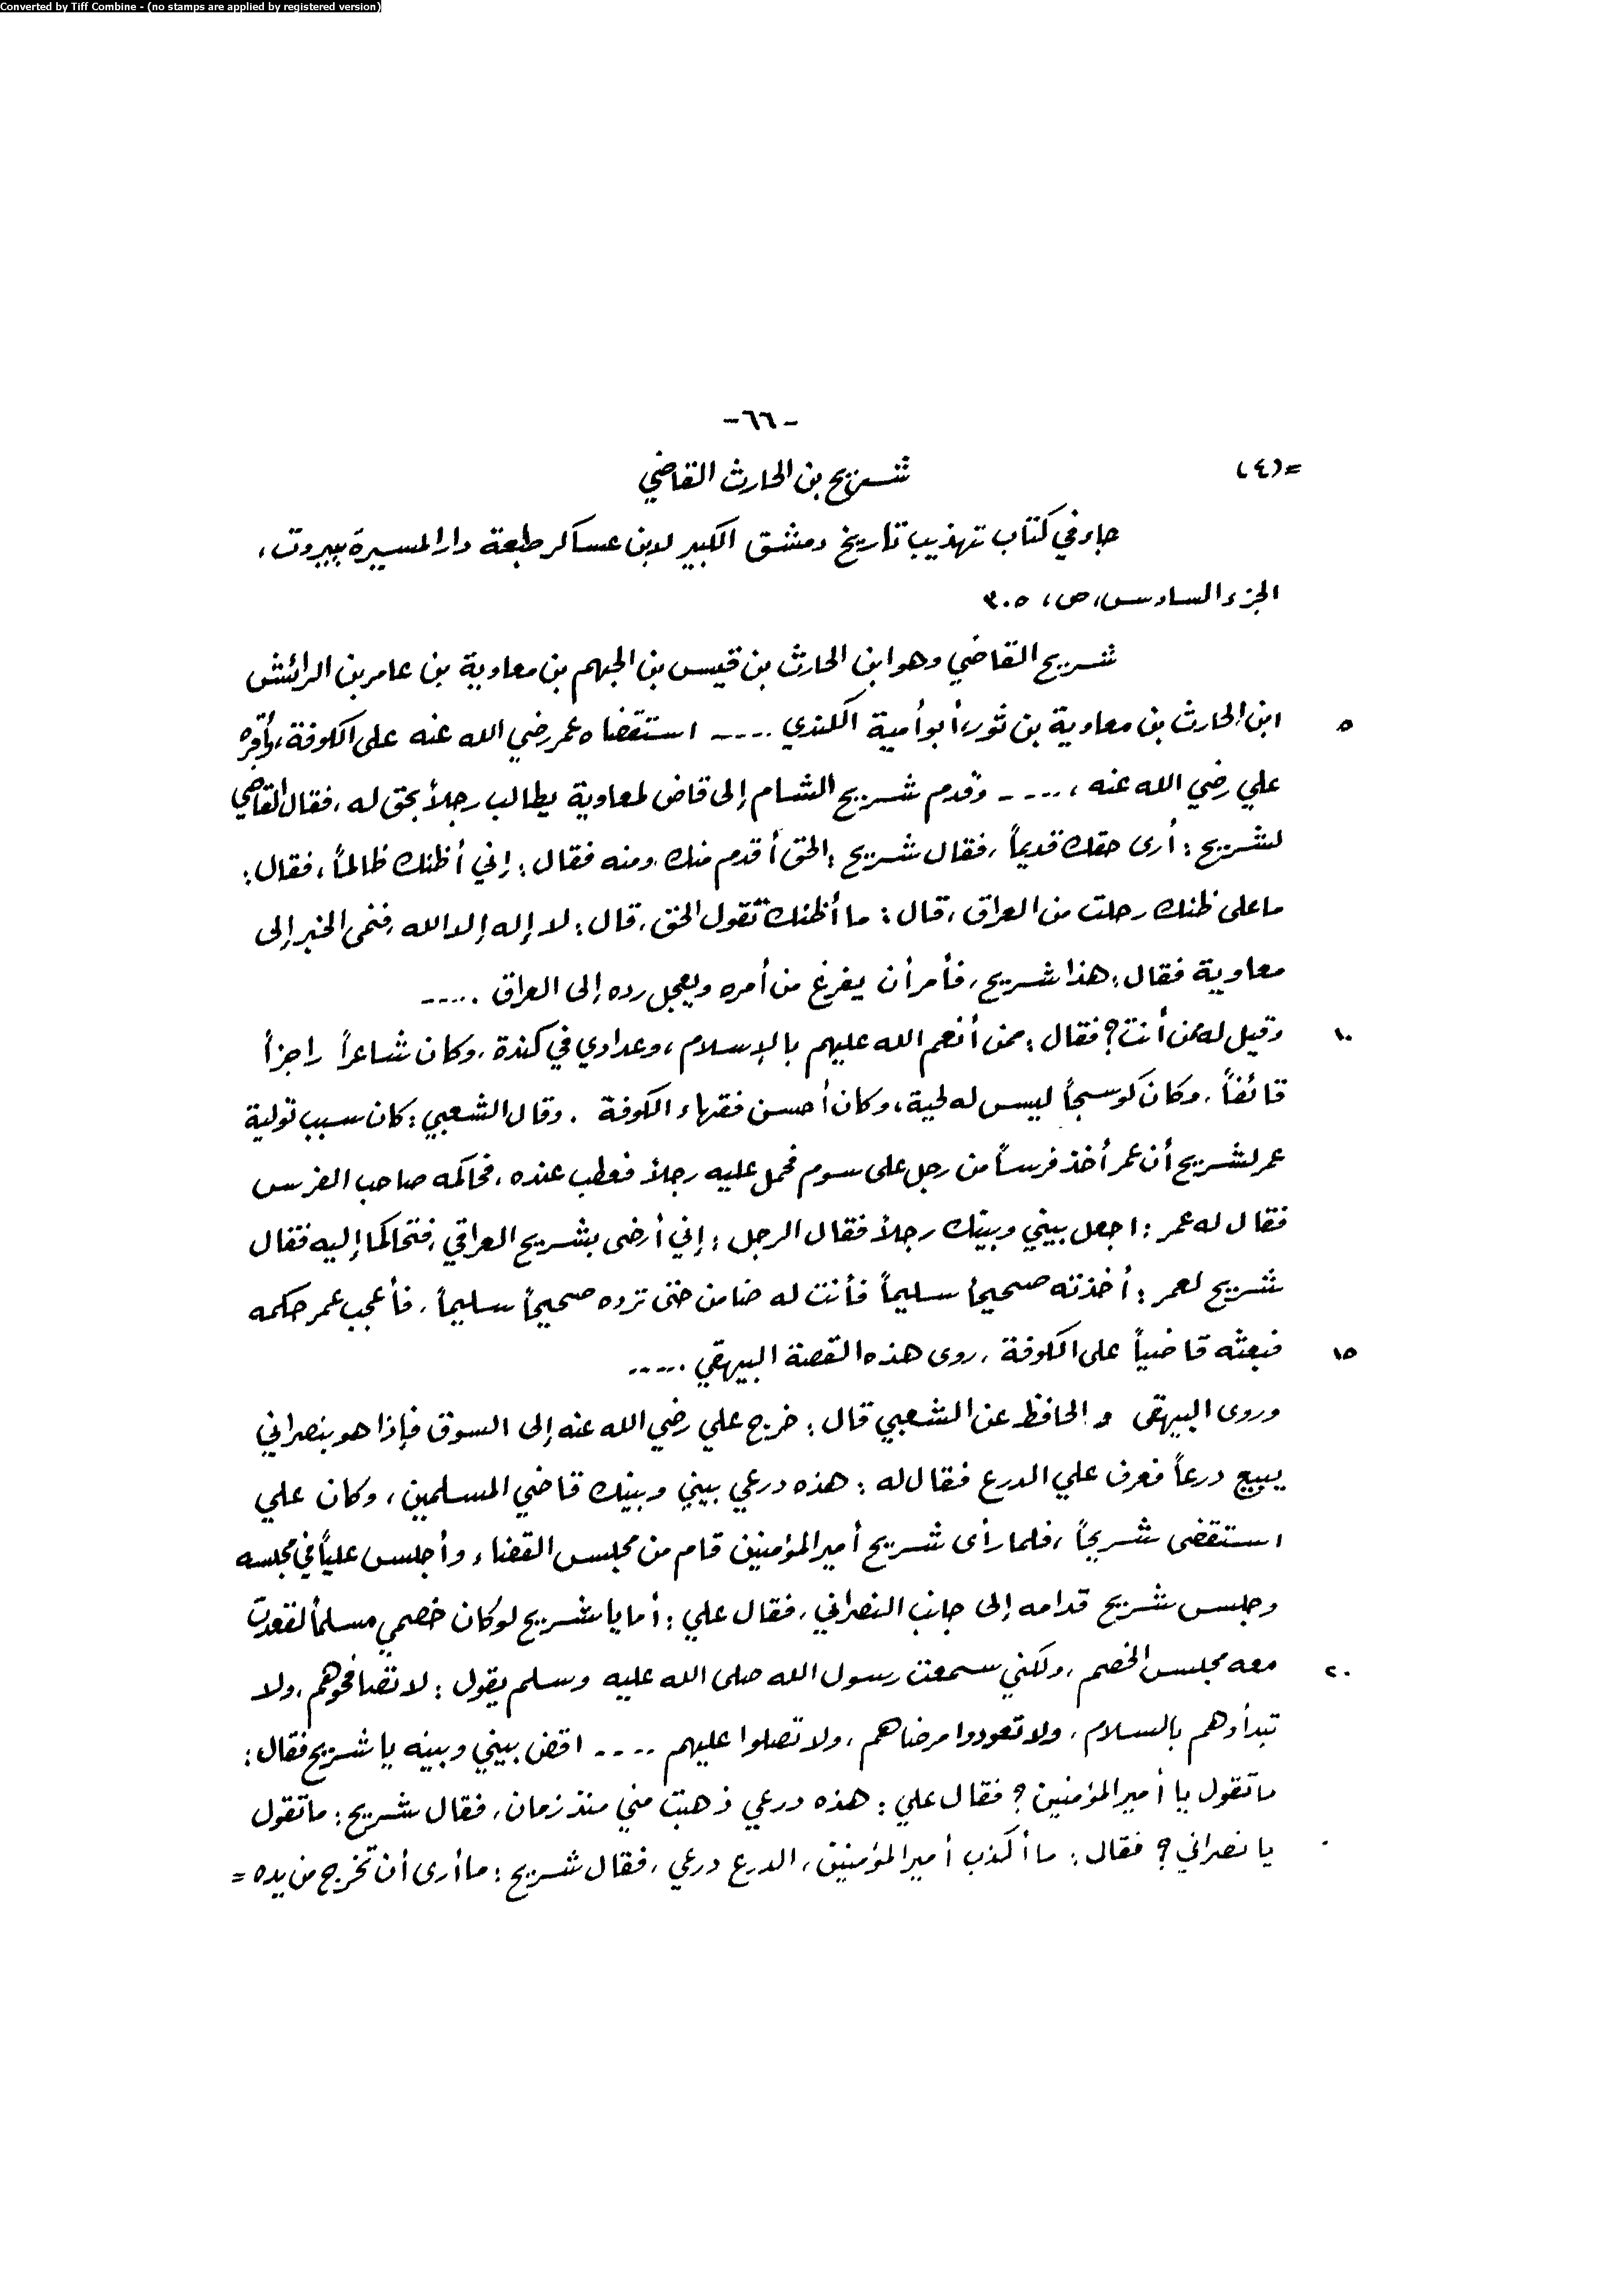 Converted by Tiff Combine - (no stamps are applied by registered version)
-٦٦-
=(٤) شريح بن الحارث القاضي
جاء في كتاب تهذيب تاريخ دمشق الكبير لابن عساكر طبعة دار المسيرة ببيروت،
الجزء السادس، ص، ٣٠٥
شريح القاضي وهو ابن الحارث بن قيس بن الجهم بن معاوية بن عامر بن الرائش
٥ ابن الحارث بن معاوية بن ثور، أبو أمية الكندي ..... استقضاه عمر رضي الله عنه على الكوفة، وأقره
علي رضي الله عنه، ..... وقدم شريح الشام إلى قاض لمعاوية يطالب رجلاً بحق له، فقال القاضي
لشريح: أرى حقك قديماً، فقال شريح: الحق أقدم منك ومنه فقال: إني أظنك ظالماً، فقال:
ما على ظنك رحلت من العراق، قال: ما أظنك تقول الحق، قال: لا إله إلا الله، فنمى الخبر إلى
معاوية فقال: هذا شريح، فأمر أن يفرغ من أمره ويعجل رده إلى العراق .....
١٠ وقيل له ممن أنت؟ فقال: ممن أنعم الله عليهم بالإسلام، وعدادي في كندة، وكان شاعراً راجزاً
قائفاً، وكان كوسجاً ليس له لحية، وكان أحسن فقهاء الكوفة. وقال الشعبي: كان سبب تولية
عمر لشريح أن عمر أخذ فرساً من رجل على سوم فحمل عليه رجلاً فعطب عنده، فحاكمه صاحب الفرس
فقال له عمر: اجعل بيني وبينك رجلاً فقال الرجل: إني أرضى بشريح العراقي، فتحاكما إليه فقال
شريح لعمر: أخذته صحيحاً سليماً فأنت له ضامن حتى ترده صحيحاً سليماً، فأعجب عمر حكمه
١٥ فبعثه قاضياً على الكوفة، روى هذه القصة البيهقي .....
وروى البيهقي والحافظ عن الشعبي قال: خرج علي رضي الله عنه إلى السوق فإذا هو بنصراني
يبيع درعاً فعرف علي الدرع فقال له: هذه درعي بيني وبينك قاضي المسلمين، وكان علي
استقضى شريحاً، فلما رأى شريح أمير المؤمنين قام من مجلس القضاء وأجلس علياً في مجلسه
وجلس شريح قدامه إلى جانب النصراني، فقال علي: أما يا شريح لو كان خصمي مسلماً لقعدت
٢٠ معه مجلس الخصم، ولكني سمعت رسول الله صلى الله عليه وسلم يقول: لا تصافحوهم، ولا
تبدأوهم بالسلام، ولا تعودوا مرضاهم، ولا تصلوا عليهم ..... اقض بيني وبينه يا شريح فقال:
ما تقول يا أمير المؤمنين؟ فقال علي: هذه درعي ذهبت مني منذ زمان، فقال شريح: ما تقول
يا نصراني؟ فقال: ما أكذب أمير المؤمنين، الدرع درعي، فقال شريح: ما أرى أن تخرج من يده =